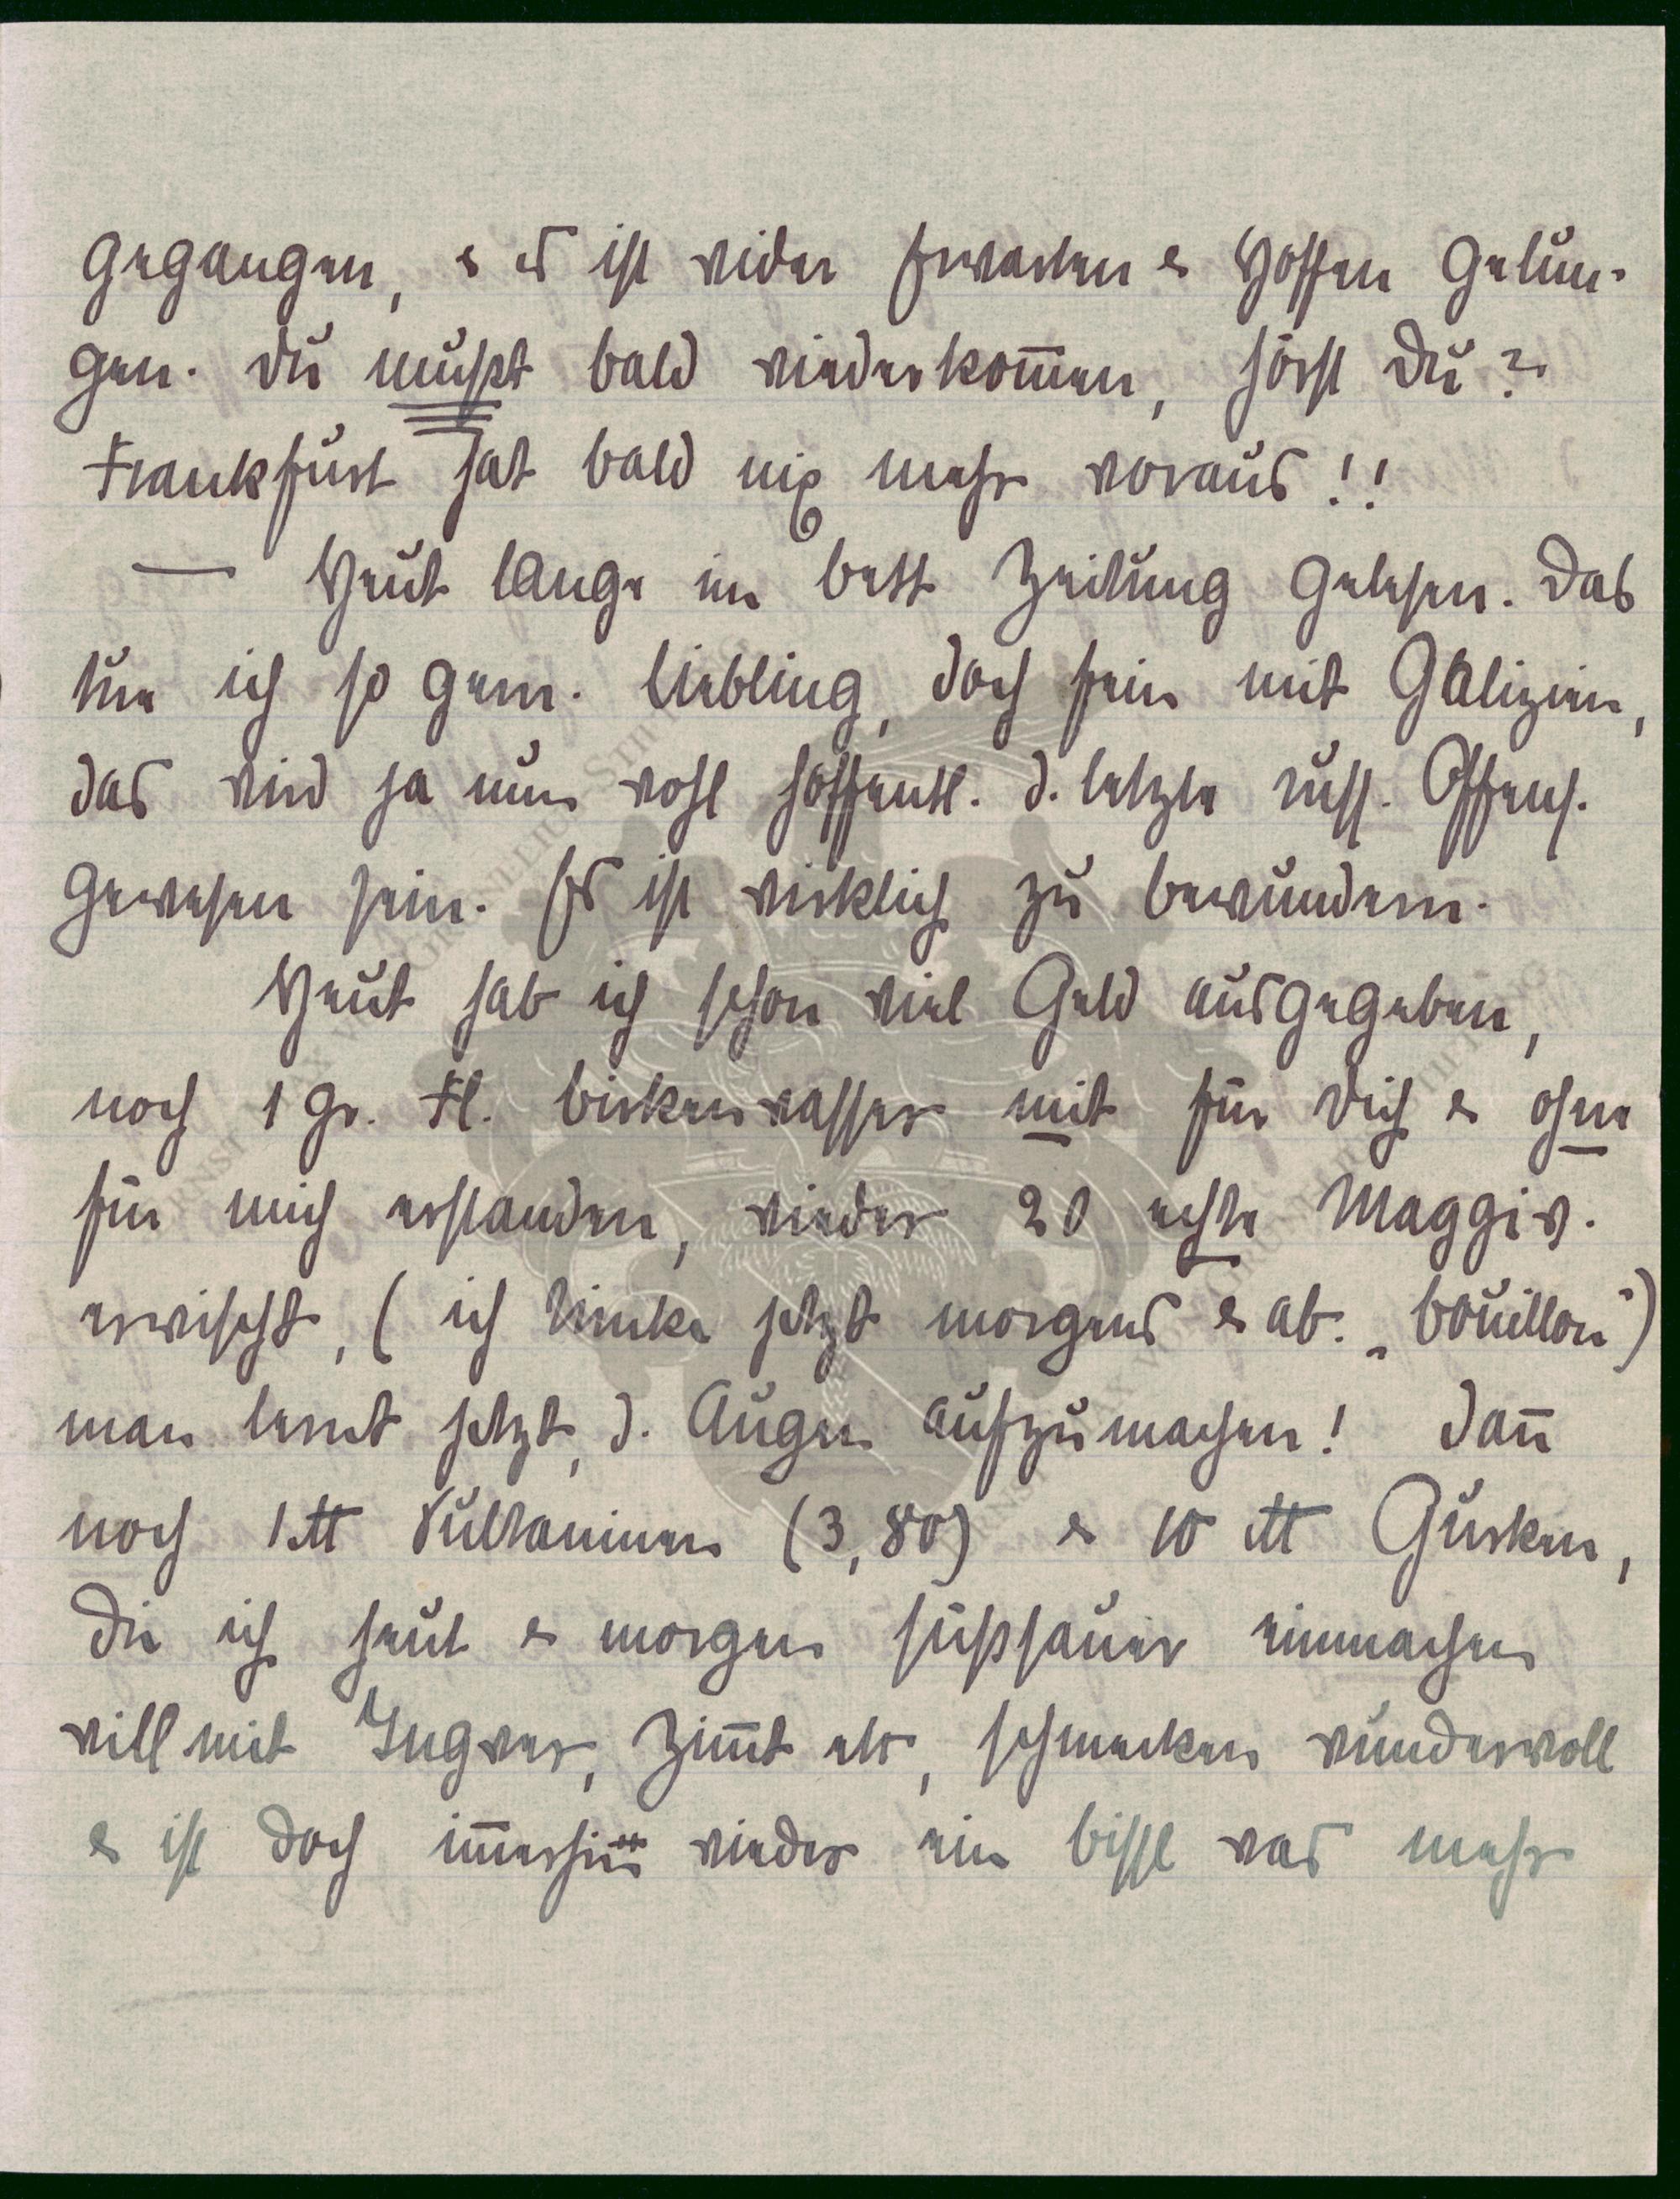 gegangen, & es ist wider Erwarten & Hoffen gelun-
gen. Du mußt bald wiederkom̅en, hörst Du?
Frankfurt hat bald nix mehr voraus!!
— Heut lange im Bett Zeitung gelesen. Das
tue ich so gern. Liebling, doch fein mit Galizien,
das wird ja nun wohl hoffentl. d. letzte russ. Offens.
gewesen sein. Es ist wirklich zu bewundern.
Heut hab ich schon viel Geld ausgegeben,
noch 1 gr. Fl. Birkenwasser mit für Dich & ohne
für mich erstanden, wieder 20 echte Maggiw.
erwischt, (ich trinke jetzt morgens & ab. „Bouillon“)
man lernt jetzt, d. Augen aufzumachen! Dan̅
noch 1 ℔ Sultaninen (3,80) & 10 ℔ Gurken,
die ich heut & morgen süßsauer einmachen
will mit Ingwer, Zim̅t etc, schmecken wundervoll
& ist doch im̅erhin wieder ein bissl was mehr